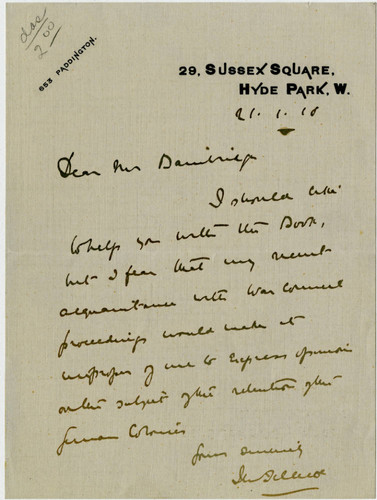 dos
2.00
653 PADDINGTON.
29, SUSSEX SQUARE,
HYDE PARK, W.
21. 1. 18
Dear Mr Bainbridge
I should like
to help you with the Book,
but I fear that my recent
acquaintance with War Council
proceedings would make it
improper of me to express opinion
on the subject of the retention of the
German Colonies
Yours sincerely